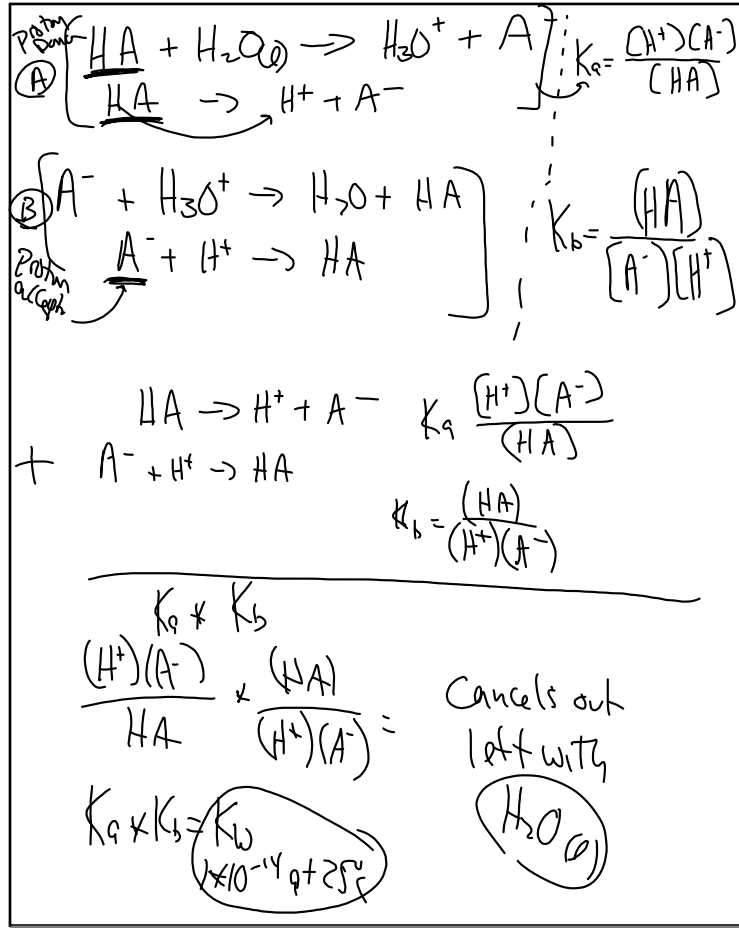 Proton
Donor
A
HA + H₂O(l) → H₃O⁺ + A⁻
Ka = (H⁺)(A⁻) / (HA)
HA → H⁺ + A⁻
B
A⁻ + H₃O⁺ → H₂O + HA
Kb = (HA) / [A⁻][H⁺]
A⁻ + H⁺ → HA
Proton
HA → H⁺ + A⁻
Ka [H⁺](A⁻) / (HA)
+ A⁻ + H⁺ → HA
Kb = (HA) / (H⁺)(A⁻)
Ka * Kb
(H⁺)(A⁻) / HA * (HA) / (H⁺)(A⁻) =
Cancels out
left with
H₂O (l)
Ka * Kb = Kw
1*10⁻¹⁴ at 25°C